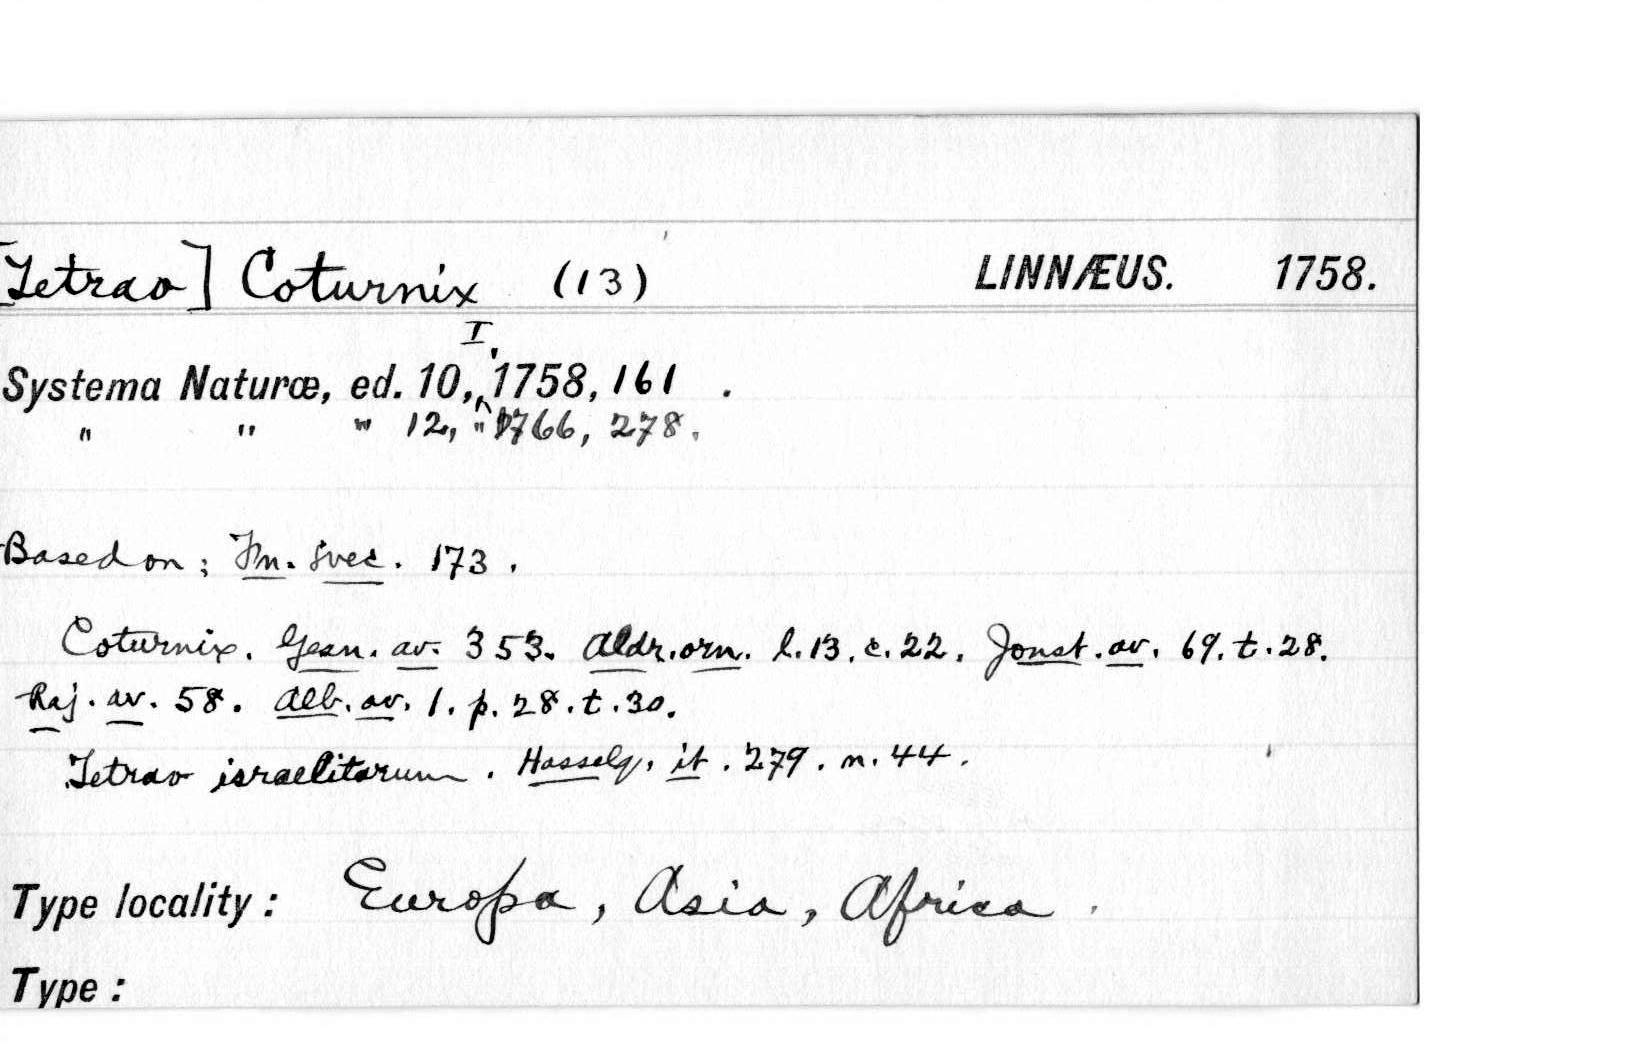 [Tetrao] Coturnix (13) LINNÆUS. 1758.
I,
Systema Naturæ, ed. 10, ‸1758, 161 .
" " " 12, " 1766, 278.
Based on ; Fn. Svec. 173 .
Coturnix. Gesn. av. 353. Aldr. orn. l. 13. c. 22. Jonst. av. 69. t. 28.
Raj. av. 58. Alb. av. 1. p. 28. t. 30.
Tetrao israelitarum . Hasselq. it . 279 . n. 44 .
Type locality : Europa , Asia , Africa .
Type :